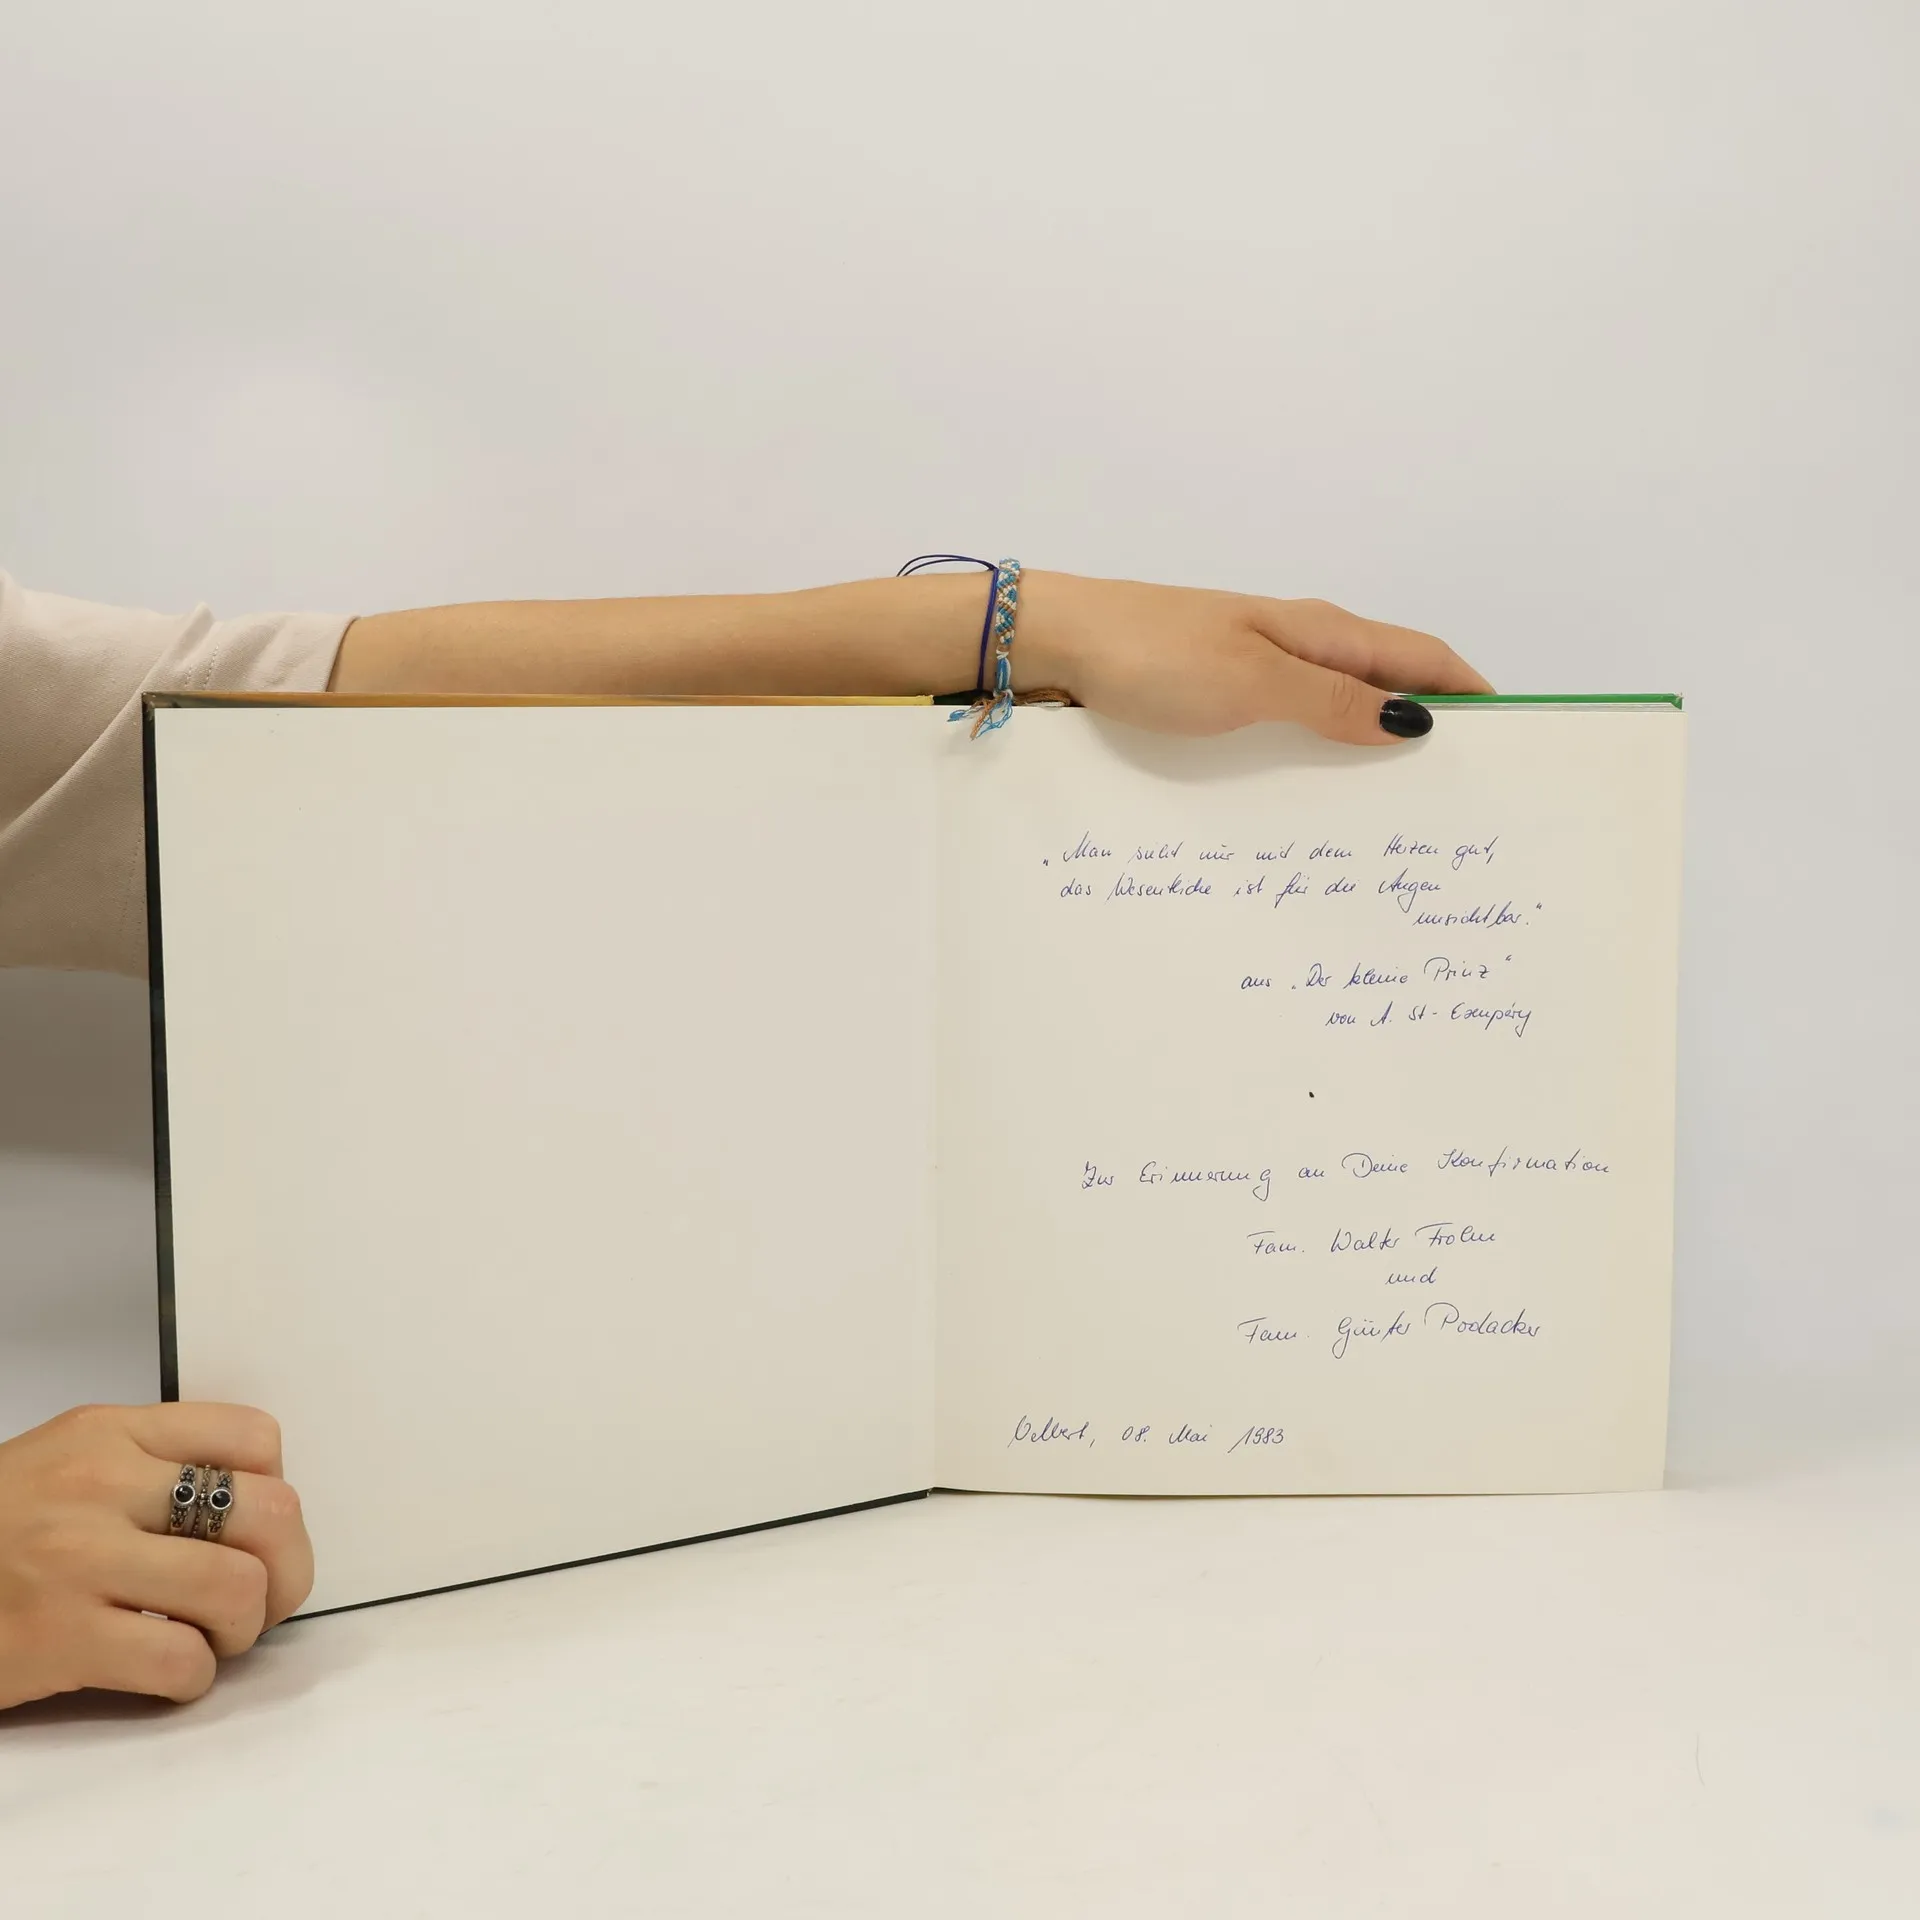 „Man sieht nur mit dem Herzen gut,
das Wesentliche ist für die Augen
unsichtbar."
aus „Der kleine Prinz"
von A. St-Exupéry
Zur Erinnerung an Deine Konfirmation
Fam. Walter Frohn
und
Fam. Günter Podacker
Velbert, 08. Mai 1983